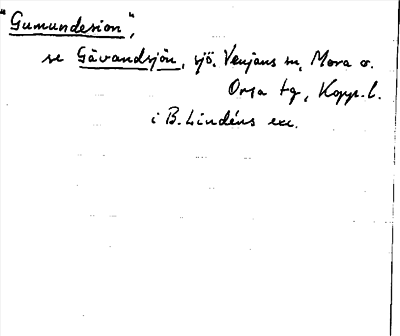 "Gumundesion",
se Gåvandsjön, sjö, Venjans sn, Mora o.
Orsa tg, Kopp. l.
i B. Lindéns exc.